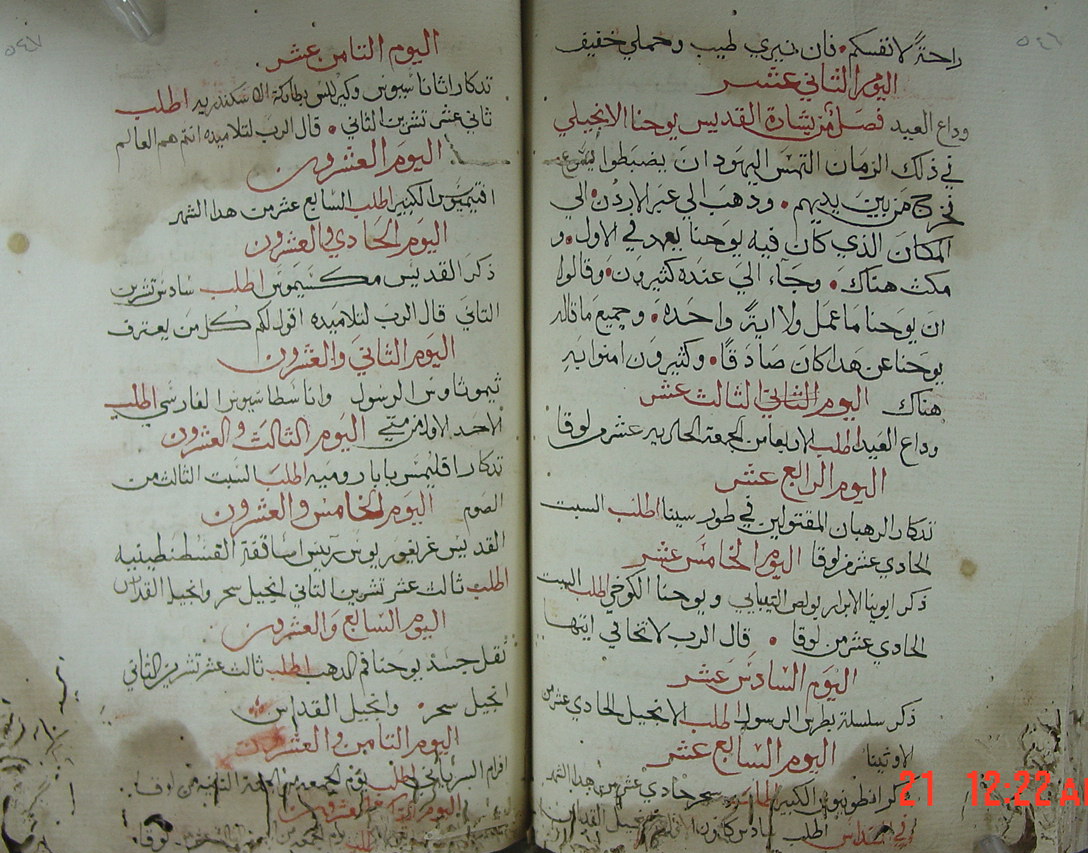 راحة لانفسكم • فان نيري طيب وحملي خفيف
اليوم الثاني عشر
وداع العيد فصل من بشارة القديس يوحنا الانجيلي
في ذلك الزمان التمس اليهود ان يضبطوا يسوع
فخرج من بين يديهم • وذهب الى عبر الاردن الى
المكان الذي كان فيه يوحنا يعمد في الاول • و
مكث هناك • وجاء الى عنده كثيرون • وقالوا
ان يوحنا ما عمل ولا اية واحده • وجميع ما قاله
يوحنا عن هذا كان صادقا • وكثيرون امنوا به
هناك اليوم الثاني الثالث عشر
وداع العيد اطلب الاربعا من الجمعة الحاديه عشر من لوقا
اليوم الرابع عشر
تدكار الرهبان المقتولين في طور سينا اطلب السبت
الحادي عشر من لوقا اليوم الخامس عشر
ذكر ابوينا الابرار بولص التيبايي ويوحنا الكوخي اطلب السبت
الحادي عشر من لوقا • قال الرب لا تخافي ايتها
اليوم السادس عشر
ذكر سلسلة بطرس الرسول اطلب الانجيل الحادي عشر من
الاوثينا اليوم السابع عشر
ذكر انطونيوس الكبير اطلب سحر حادي عشر من هذا الشهر
في القداس اطلب سادس كانون الاول انجيل القداس
اليوم الثامن عشر
تدكار اثاناسيوس وكيرللس بطاركة الاسكندريه اطلب
ثاني عشر تشرين الثاني • قال الرب لتلاميده انتم هم العالم
اليوم العشرون
افتيميوس الكبير اطلب السابع عشر من هدا الشهر
اليوم الحادي والعشرون
ذكر القديس مكسيموس اطلب سادس تشرين
الثاني قال الرب لتلاميده اقول لكم كل من يعترف
اليوم الثاني والعشرون
ثيموثاوس الرسول واناسطاسيوس الفارسي اطلب
الاحد الاول من متى اليوم الثالث والعشرون
تدكار اقليمس بابا روميه اطلب السبت الثالث من
الصوم اليوم الخامس والعشرون
القديس غريغوريوس ريس اساقفة القسطنطينية
اطلب ثالث عشر تشرين الثاني انجيل سحر وانجيل القداس
اليوم السابع والعشرون
نقل جسد يوحنا فم الدهب اطلب ثالث عشر تشرين الثاني
انجيل سحر • وانجيل القداس
اليوم الثامن والعشرون
افرام السرياني اطلب يوم الجمعه من الجمعة الثانية من لوقا
اليوم والعشرون
اطلب لوقا
21 12:22 AM